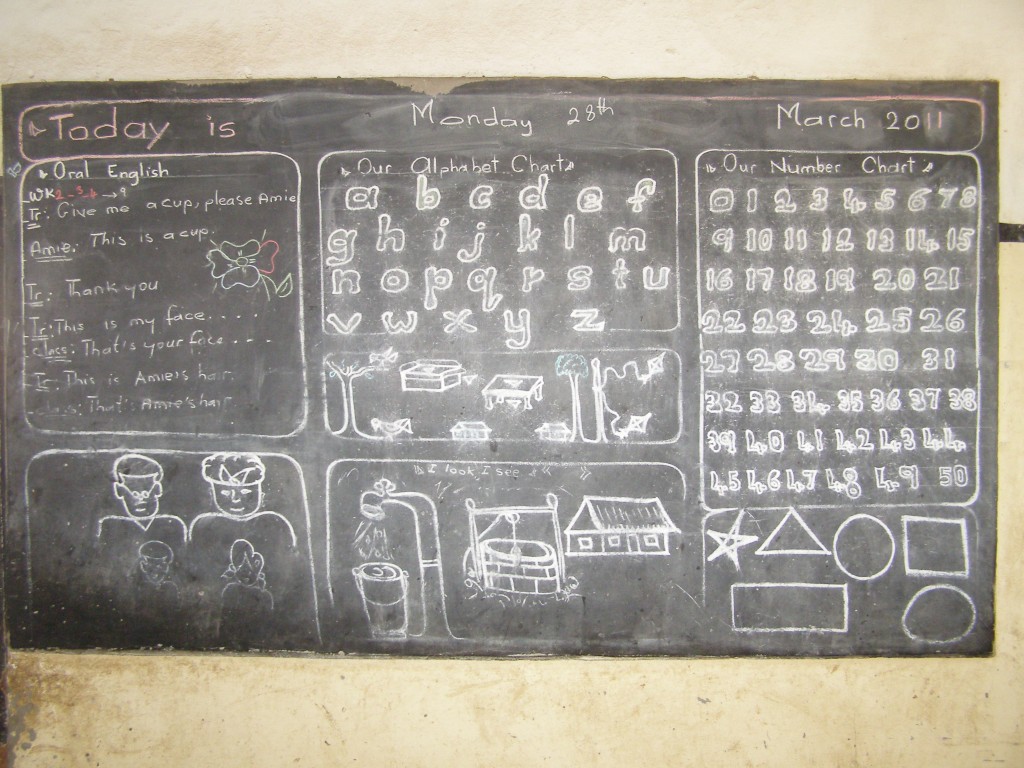 Today is Monday 28th March 2011
Oral English
WK2-3-4→9
Tr: Give me a cup, please Amie
Amie: This is a cup.
Tr: Thank you
Tr: This is my face....
class: That's your face...
Tr: This is Amie's hair.
class: That's Amie's hair
Our Alphabet Chart
a b c d e f
g h i j k l m
n o p q r s t u
v w x y z
I look I see
Our Number Chart
0 1 2 3 4 5 6 7 8
9 10 11 12 13 14 15
16 17 18 19 20 21
22 23 24 25 26
27 28 29 30 31
32 33 34 35 36 37 38
39 40 41 42 43 44
45 46 47 48 49 50